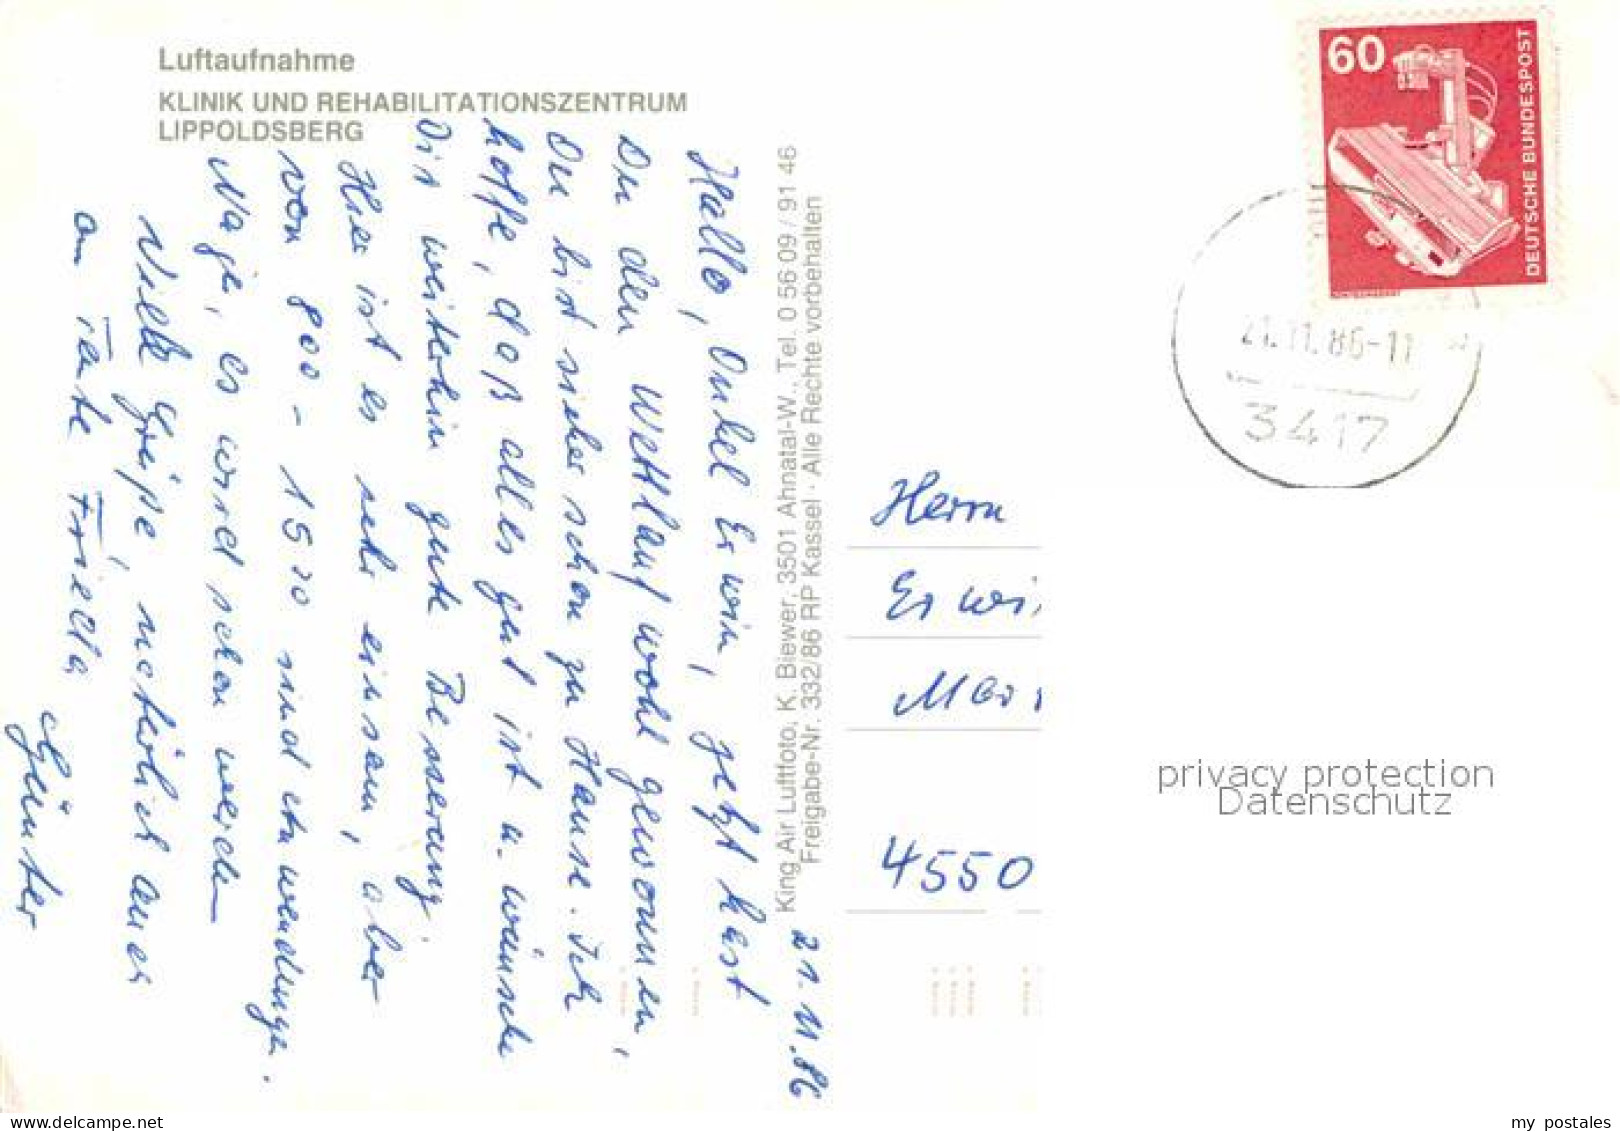 Luftaufnahme
KLINIK UND REHABILITATIONSZENTRUM
LIPPOLDSBERG
21.11.86
Hallo, Onkel Erwin, jetzt hast
Du den Wettlauf wohl gewonnen,
Du bist sicher schon zu Hause. Ich
hoffe, daß alles gut ist u. wünsche
Dir weiterhin gute Besserung.
Hier ist es sehr einsam, aber
von 800 - 1500 sind Anwendungen.
Naja, es wird schon werden
Viele Grüße, natürlich auch
an Tante Frieda
Günter
King Air Luftfoto, K. Biewer, 3501 Ahnatal-W., Tel. 0 56 09 / 91 46
Freigabe-Nr. 332/86 RP Kassel · Alle Rechte vorbehalten
60
DEUTSCHE BUNDESPOST
21.11.86-11
3417
Herrn
Erwi
4550
privacy protection
Datenschutz
my postales